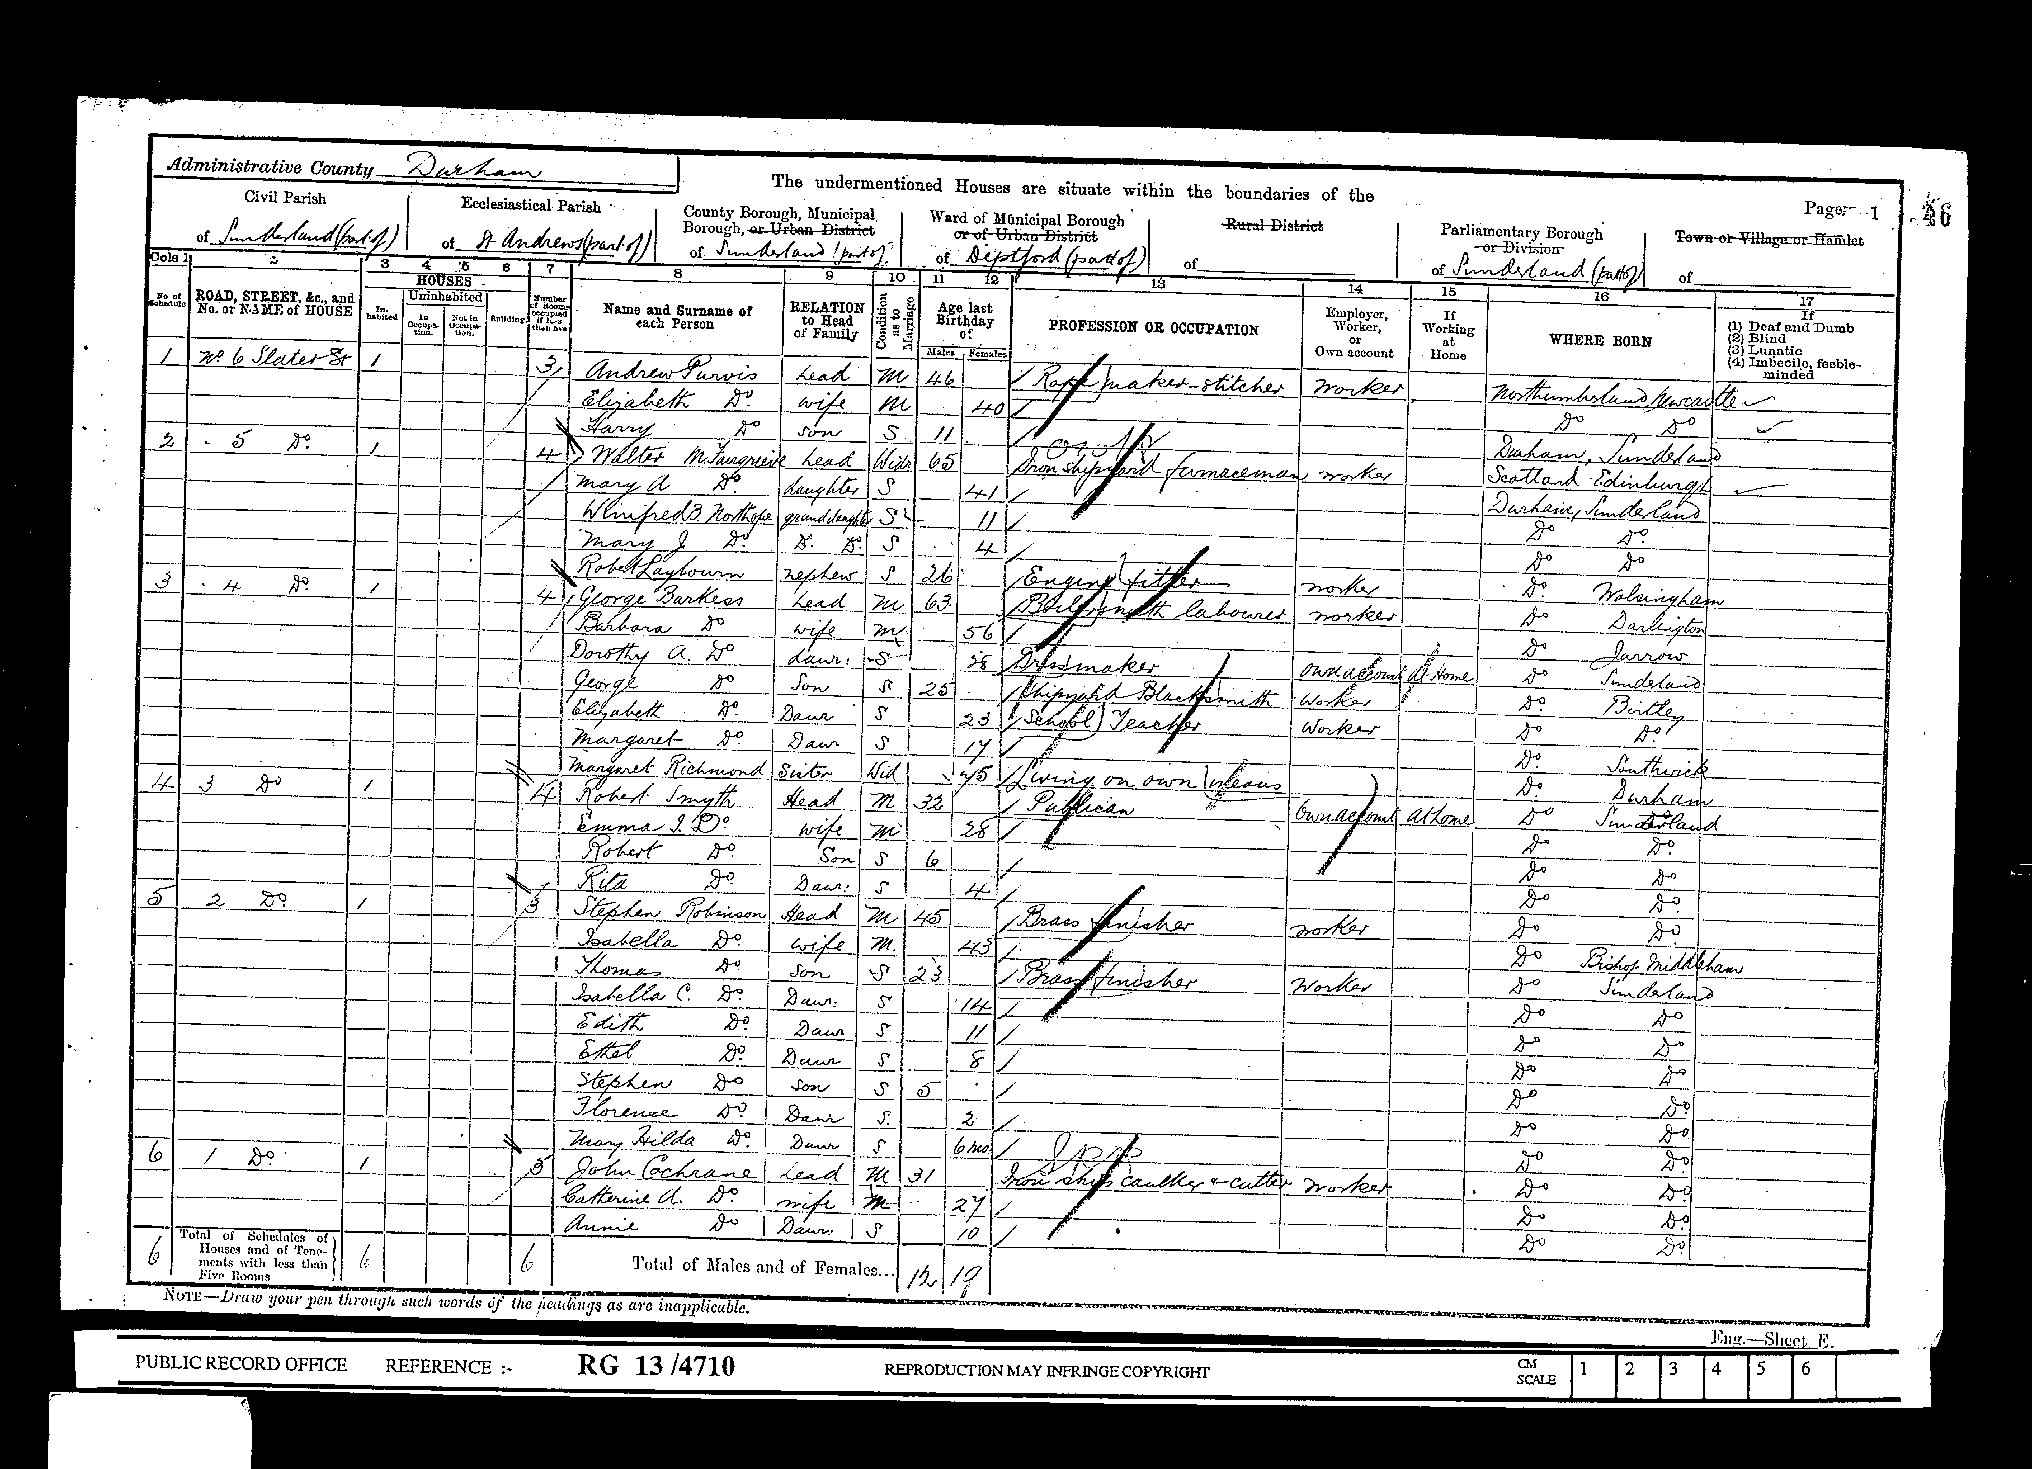 Administrative County Durham
The undermentioned Houses are situate within the boundaries of the
Page 1
46
Civil Parish
of Sunderland (part of)
Ecclesiastical Parish
of St Andrews (part of)
County Borough, Municipal
Borough, or Urban District
of Sunderland (part of)
Ward of Municipal Borough
or of Urban District
of Deptford (part of)
Rural District
of
Parliamentary Borough
or Division
of Sunderland (part of)
Town or Village or Hamlet
of
Cols 1 2 3 4 5 6 7 8 9 10 11 12 13 14 15 16 17
No. of Schedule
ROAD, STREET, &c., and No. or NAME of HOUSE
HOUSES
Inhabited
Uninhabited
In Occupation.
Not in Occupation.
Building
Number of Rooms occupied if less than five
Name and Surname of each Person
RELATION to Head of Family
Condition as to Marriage
Age last Birthday of
Males Females
PROFESSION OR OCCUPATION
Employer, Worker, or Own account
If Working at Home
WHERE BORN
If
(1) Deaf and Dumb
(2) Blind
(3) Lunatic
(4) Imbecile, feeble-minded
1 No. 6 Slater St 1 3 Andrew Purvis Head M 46 maker-stitcher Worker Northumberland Newcastle
Elizabeth Do wife M 40 Do Do
Harry Do son S 11 Durham, Sunderland
2 5 Do 1 4 Walter Head Widr 65 Iron shipyard furnaceman worker Scotland Edinburgh
Mary A Do daughter S 41 Durham, Sunderland
Winifred B. Northope granddaughter S 11 Do Do
Mary J Do Do Do S 4 Do Do
Robert Laybourn nephew S 26 Engine fitter worker Do Wolsingham
3 4 Do 1 4 George Barkess Head M 63 Boilersmith labourer worker Do Darlington
Barbara Do wife M 56 Do Jarrow
Dorothy A. Do daur: S 28 Dressmaker Own account At Home Do Sunderland
George Do Son S 25 Shipyard Blacksmith Worker Do Birtley
Elizabeth Do Daur S 23 (School) Teacher Worker Do Do
Margaret Do Daur S 17 Do Southwick
Margaret Richmond Sister Wid 75 Living on own means Do Durham
4 3 Do 1 4 Robert Smyth Head M 32 Publican Own account At home Do Sunderland
Emma J. Do wife M 28 Do Do
Robert Do Son S 6 Do Do
Rita Do Daur: S 4 Do Do
5 2 Do 1 3 Stephen Robinson Head M 45 Brass finisher worker Do Do
Isabella Do wife M 43 Do Bishop Middleham
Thomas Do son S 23 Brass finisher Worker Do Sunderland
Isabella C. Do Daur: S 14 Do Do
Edith Do Daur S 11 Do Do
Ethel Do Daur S 8 Do Do
Stephen Do son S 5 Do Do
Florence Do Daur S 2 Do Do
Mary Hilda Do Daur S 6 mo Do Do
6 1 Do 1 3 John Cochrane Head M 31 Iron ships caulker & cutter worker Do Do
Catherine A. Do wife M 27 Do Do
Annie Do Daur: S 10 Do Do
6 Total of Schedules of Houses and of Tenements with less than Five Rooms 6 6 Total of Males and of Females... 12 19
NOTE—Draw your pen through such words of the headings as are inapplicable.
Eng.—Sheet E.
PUBLIC RECORD OFFICE REFERENCE :- RG 13/4710 REPRODUCTION MAY INFRINGE COPYRIGHT CM SCALE 1 2 3 4 5 6